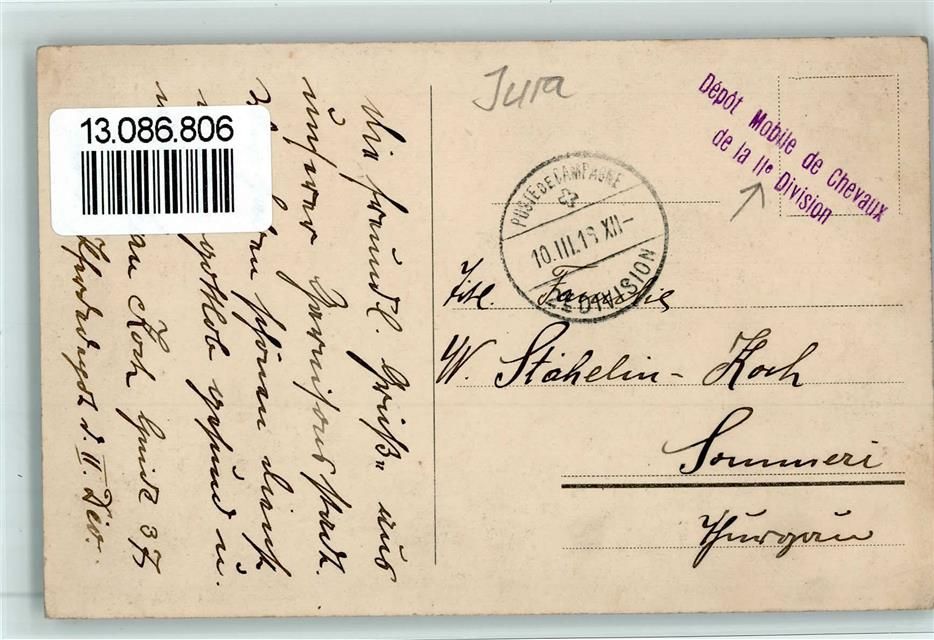 13.086.806
Jura
Dépôt Mobile de Chevaux
de la IIe Division
POSTE DE CAMPAGNE
10.III.16 XII-
2E DIVISION
Die freundl. Grüße aus
unserer Garnisonsstadt.
schönen dienst
gottlob gesund u.
Koch Guide 37
Pferdedepot d. II. Div.
Titl. Familie
W. Stähelin-Koch
Sommeri
Thurgau